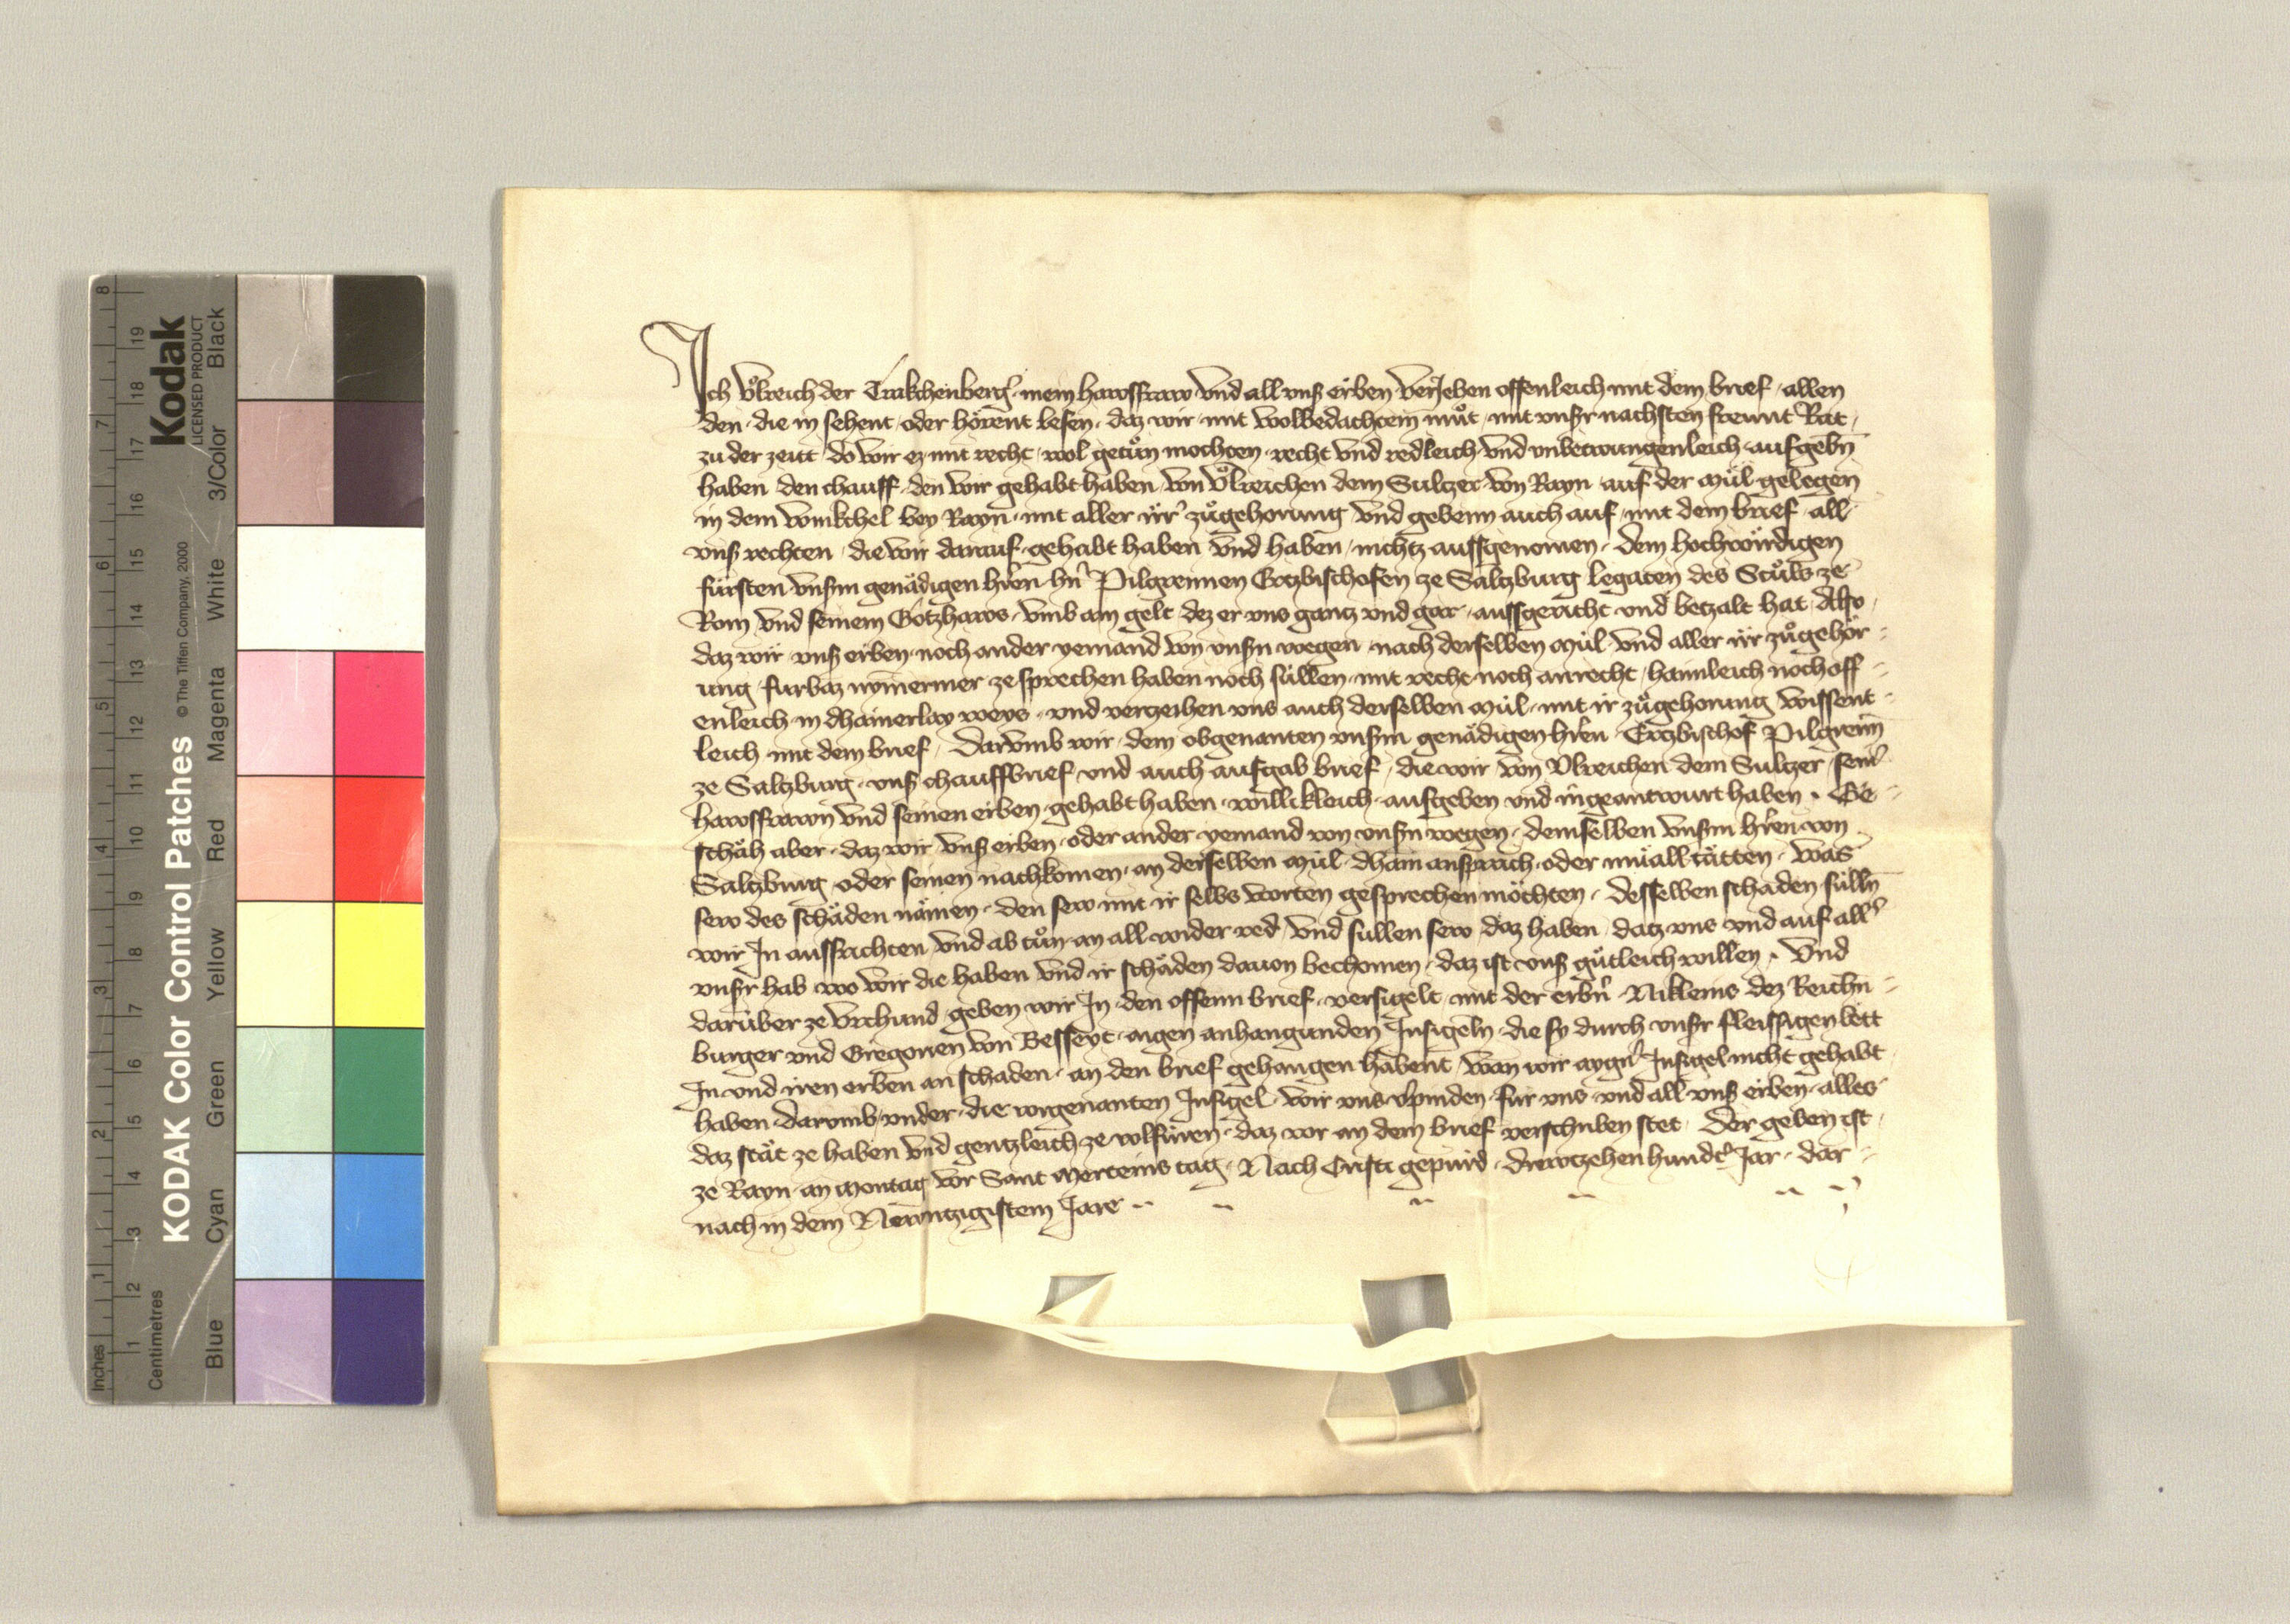 Ich Vͦlreich der Trukchenberg̉ mein hawsfraw vnd all vns̉ eriben veriehen offenleich mit dem brief allen
den die in sehent oder hörent lesen daz wir mit wolbedachtem muͦt mit vnsr̉ nachsten frewnt Rat
zu der zeitt do wir ez mit recht wol getuͦn mochten recht vnd redleich vnd vnbetwungenleich aufgebn̄
haben den chauff den wir gehabt haben von Vͦlreichen dem Sultzer von Rayn auf der mül gelegen
in dem winkchel bey Rayn mit aller irr̉ zuͦgehorung vnd gebenn auch auf mit dem brief all
vns̉ rechten die wir darauf gehabt haben vnd haben nichtz aussgenomen dem hochwirdigen
fürsten vns̉m genädigen hr̉en hn̉ Pilgreimen Ertzbischofen ze Saltzburg legaten des Stuͦls ze
Rom vnd seinem Gotzhaws vmb ain gelt dez er vns gantz vnd gar aussgericht vnd betzalt hat Also
daz wir vns̉ eriben noch ander yemand von vns̉n wegen nach derselben mül vnd aller irr zuͦgehör
ung furbaz nymermer ze sprechen haben noch süllen mit recht noch anrecht haimleich noch off
enleich in dhainerlay weys vnd vertzeihen vns auch derselben mül mit ir zuͦgehorung wissent
leich mit dem brief Darvmb wir dem obgenanten vns̉m genädigen hr̉en Ertzbischof Pilgreim̄
ze Saltzburg vns̉ chauffbrief vnd auch aufgab brief die wir von Vlreichen dem Sultzer sein̉
hawsfrawn vnd seinen eriben gehabt haben willikleich aufgeben vnd ingeantwurt haben Ge
schäh aber daz wir vns̉ eriben oder ander yemand von vns̉n wegen demselben vns̉m hr̉en von
Saltzburg oder seinen nachkomen an derselben mül dhain ansprach oder inuäll tätten was
sew des schäden nämen den sew mit ir selbs worten gesprechen möchten desselben schaden sülln̄
wir In aussrichten vnd ab tuͦn an all wider red vnd sullen sew daz haben datz vns vnd auf all̉
vnsr̉ hab wo wir die haben vnd ir schäden dauon bechomen daz ist vns̉ guͦtleich willen Vnd
darüber ze vrchund geben wir In den offenn brief versigelt mit der erbn̉ Niklems dez Reichn̄
burger vnd Gregorien von Bessept aigen anhangunden Insigeln die sy durch vnsr̉ fleissigen bett
In vnd iren eriben an schaden an den brief gehangen habent wan wir aygn̉ Insigel nicht gehabt
haben darvmb vnder die vorgenanten Insigel wir vns vp̉inden für vns vnd all vns̉ eriben alles
daz stät ze haben vnd gentzleich ze volfüren daz vor an dem brief verschriben stet Der geben ist
ze Rayn an Montag vor Sant Merteins tag Nach Cristi gepurd Drewtzehen hundt̉ Jar dar
nach in dem Newntzigistem Jare
KODAK Color Control Patches
Kodak
LICENSED PRODUCT
© The Tiffen Company, 2000
Blue Cyan Green Yellow Red Magenta White 3/Color Black
Centimetres 1 2 3 4 5 6 7 8 9 10 11 12 13 14 15 16 17 18 19
Inches 1 2 3 4 5 6 7 8